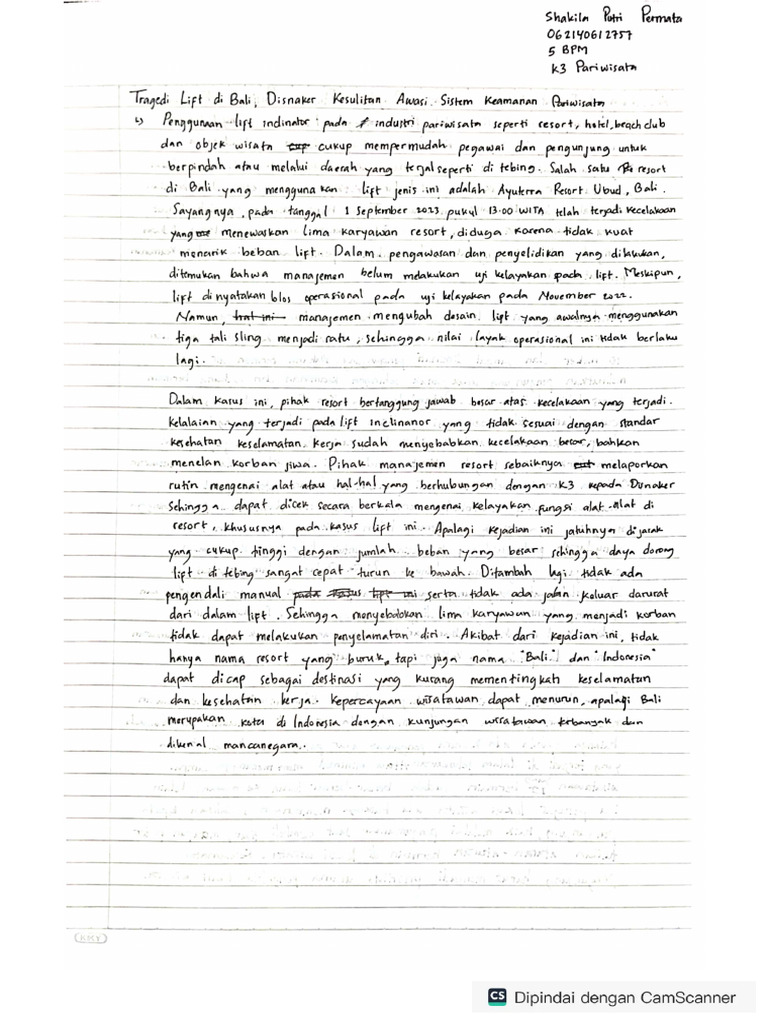 Shakila Putri Permata
062140612757
5 BPM
K3 Pariwisata
Tragedi Lift di Bali, Disnaker Kesulitan Awasi Sistem Keamanan Pariwisata
↳ Penggunaan lift indinator pada industri pariwisata seperti resort, hotel, beach club
dan objek wisata cukup mempermudah pegawai dan pengunjung untuk
berpindah atau melalui daerah yang terjal seperti di tebing. Salah satu resort
di Bali yang menggunakan lift jenis ini adalah Ayuterra Resort Ubud, Bali.
Sayangnya, pada tanggal 1 September 2023 pukul 13.00 WITA telah terjadi kecelakaan
yang menewaskan lima karyawan resort, diduga karena tidak kuat
menarik beban lift. Dalam pengawasan dan penyelidikan yang dilakukan,
ditemukan bahwa manajemen belum melakukan uji kelayakan pada lift. Meskipun,
lift dinyatakan blos operasional pada uji kelayakan pada November 2022.
Namun, manajemen mengubah desain lift yang awalnya menggunakan
tiga tali sling menjadi satu, sehingga nilai layak operasional ini tidak berlaku
lagi.
Dalam kasus ini, pihak resort bertanggung jawab besar atas kecelakaan yang terjadi.
Kelalaian yang terjadi pada lift inclinanor yang tidak sesuai dengan standar
kesehatan keselamatan kerja sudah menyebabkan kecelakaan besar, bahkan
menelan korban jiwa. Pihak manajemen resort sebaiknya melaporkan
rutin mengenai alat atau hal-hal yang berhubungan dengan K3 kepada Disnaker
sehingga dapat dicek secara berkala mengenai kelayakan fungsi alat-alat di
resort, khususnya pada kasus lift ini. Apalagi kejadian ini jatuhnya dijarak
yang cukup tinggi dengan jumlah beban yang besar sehingga daya dorong
lift di tebing sangat cepat turun ke bawah. Ditambah lagi tidak ada
pengendali manual pada kasus lift ini serta tidak ada jalan keluar darurat
dari dalam lift. Sehingga menyebabkan lima karyawan yang menjadi korban
tidak dapat melakukan penyelamatan diri. Akibat dari kejadian ini, tidak
hanya nama resort yang buruk, tapi juga nama "Bali" dan "Indonesia"
dapat dicap sebagai destinasi yang kurang mementingkan keselamatan
dan kesehatan kerja. Kepercayaan wisatawan dapat menurun, apalagi Bali
merupakan kota di Indonesia dengan kunjungan wisatawan terbanyak dan
dikenal mancanegara.
CS Dipindai dengan CamScanner